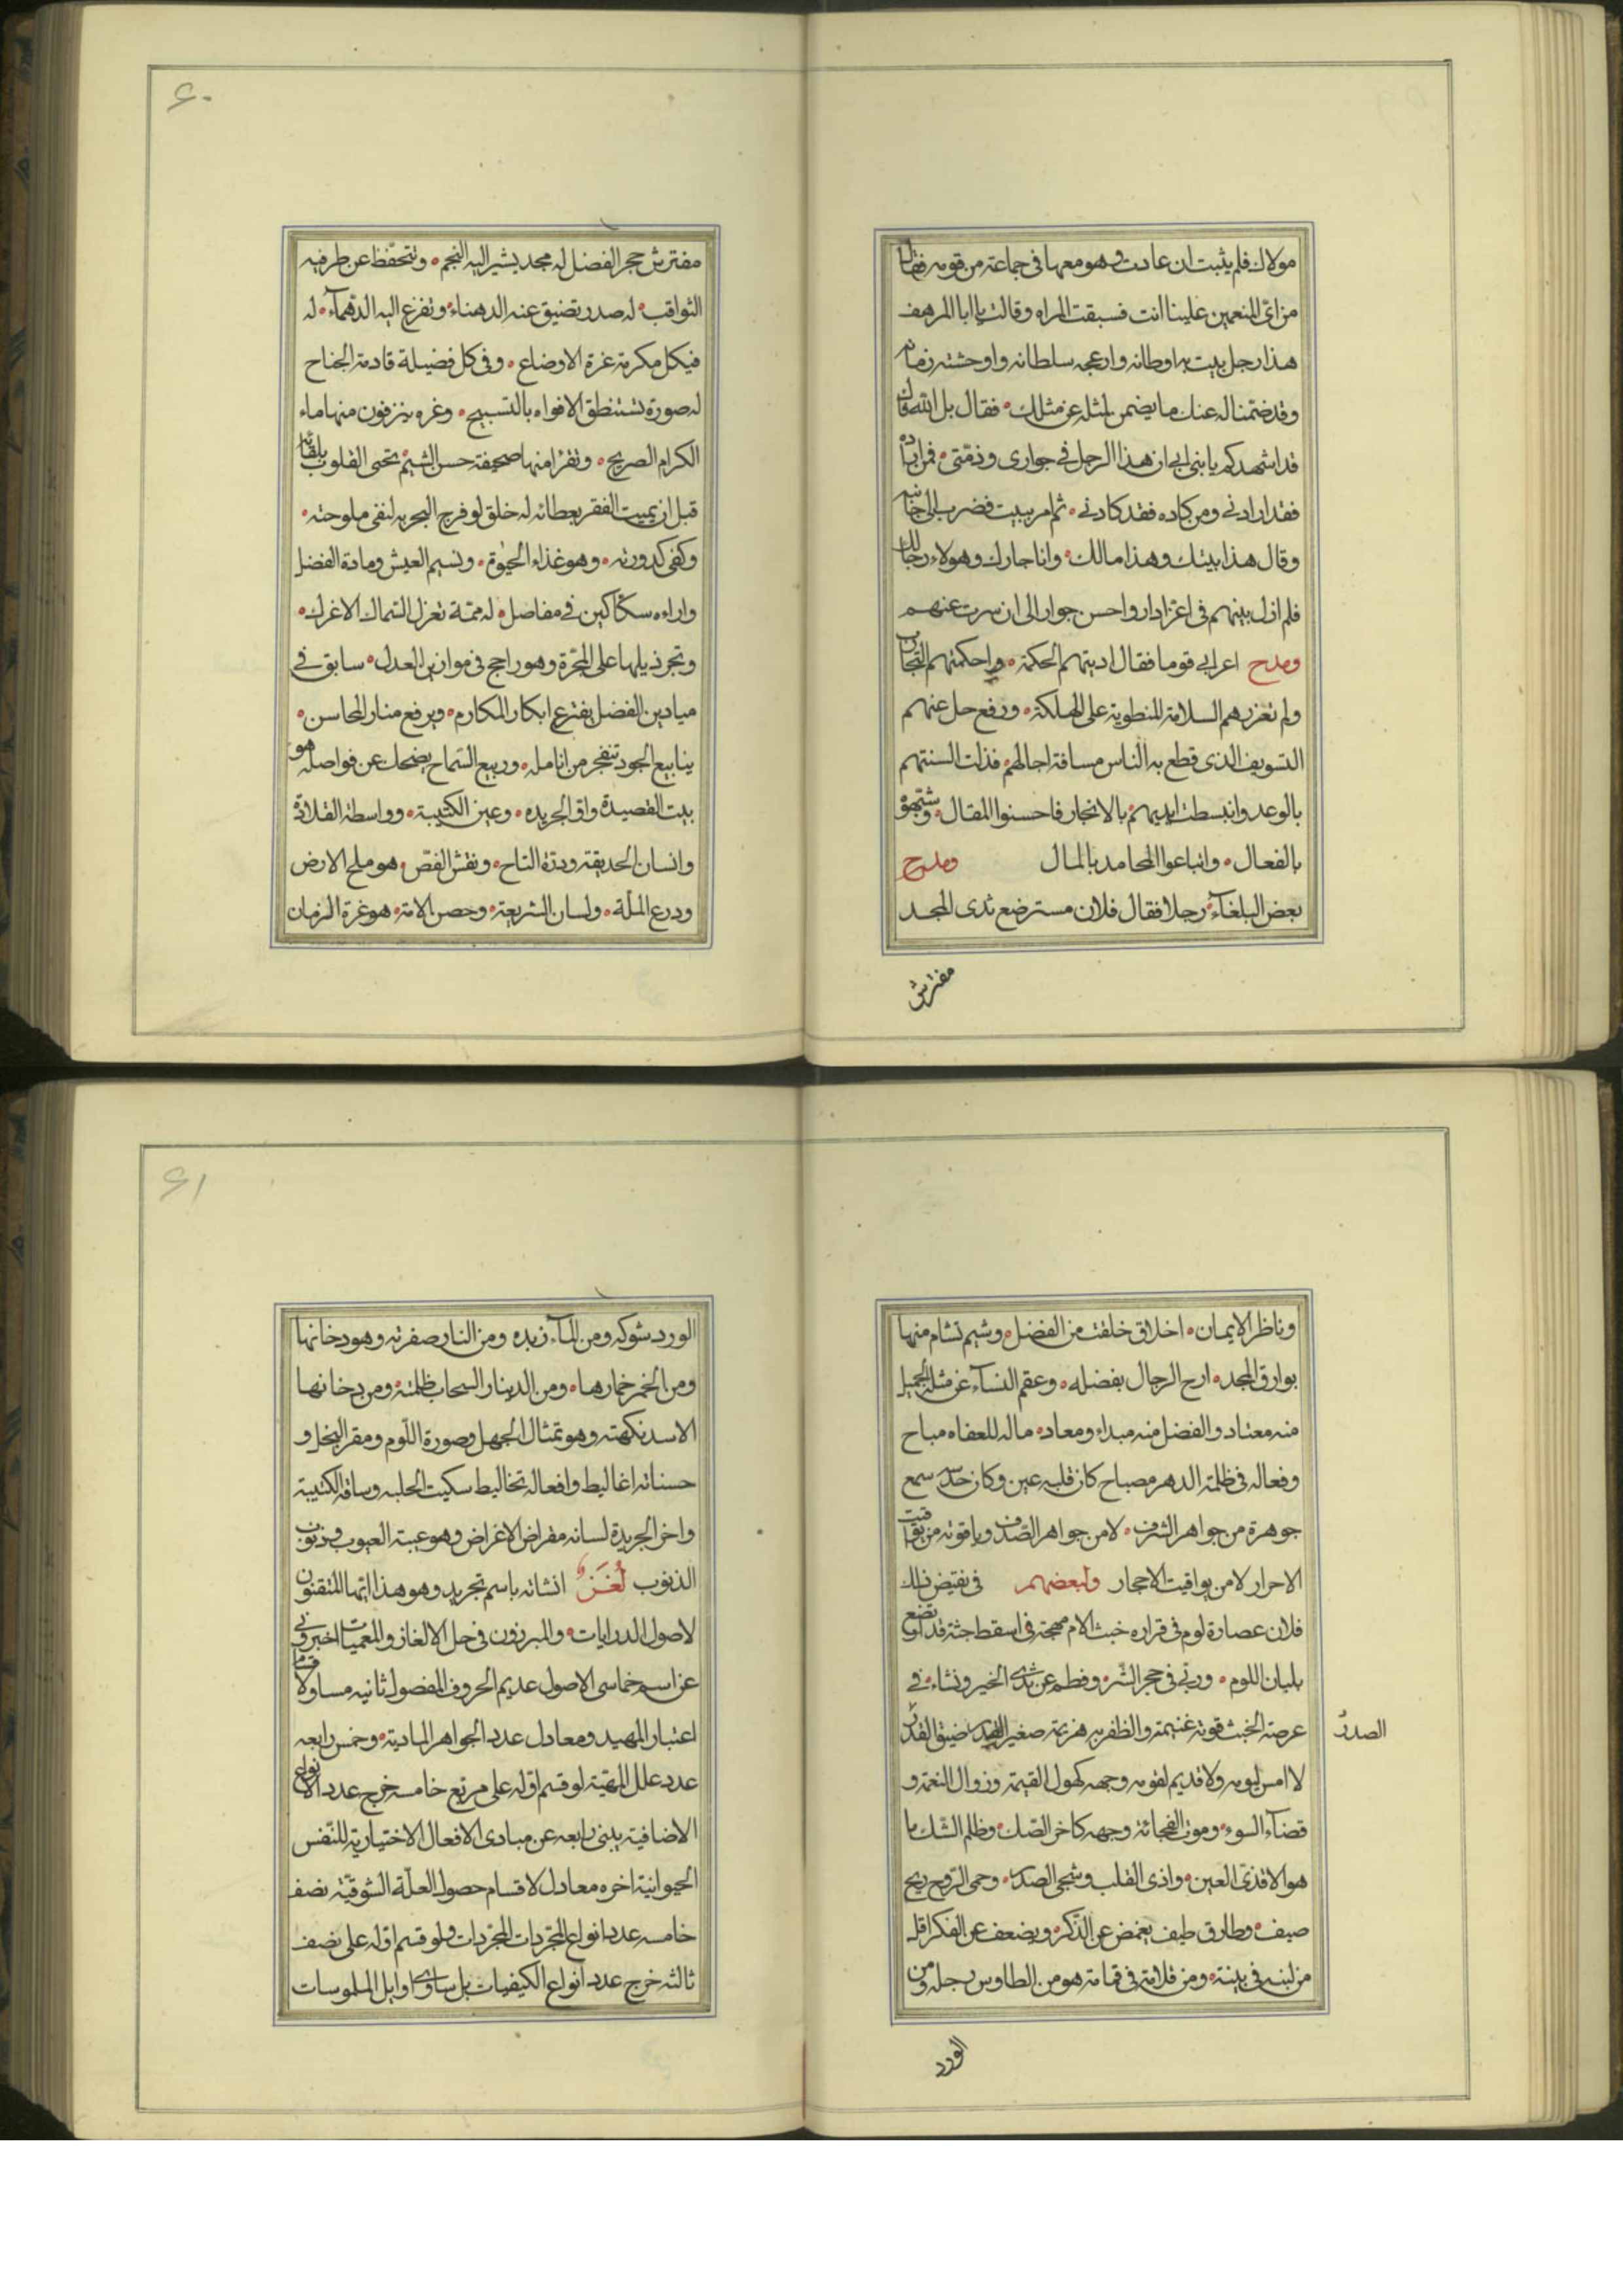 مولاك فلم يثبت ان عادت وهو معها فى جماعة من قومه فقال
من اى المنعمين علينا انت فسبقت المراه وقالت يا ابا المرهف
هذا رجل نبت به اوطانه وازعجه سلطانه واوحشته زمانه
وقد ضمنا له عنك ما يضمن لمثله عن مثلك فقال بل الله فاك
قد اشهدكم يا بنى ابى ان هذا الرجل فى جوارى وذمتى فمن اراده
فقد ارادنى ومن كاده فقد كادنى ثم امر ببيت فضرب الى جانبه
وقال هذا بيتك وهذا مالك وانا جارك وهولاء رجالك
فلم ازل بينهم فى اعز دار واحسن جوار الى ان سرت عنهم
ومدح اعرابى قوما فقال ادبتهم الحكمة واحكمتهم التجارب
ولم تغررهم السلامة المنطوية على الهلكة ورفع حل عنهم
التسويف الذى قطع به الناس مسافة اجالهم فذلت السنتهم
بالوعد وانبسطت ايديهم بالانجاز فاحسنوا المقال وشفعوه
بالفعال وابتاعوا المحامد بالمال ومدح
بعض البلغاء رجلا فقال فلان مسترضع ثدى المجد
مفترش
۶۰
مفترش حجر الفضل له مجد يشير اليه النجم وتتحفظ عن طرفيه
الثواقب له صدر تضيق عنه الدهناء وتفزع اليه الدهماء له
فيكل مكرمة غرة الاوضاع وفى كل فضيلة قادمة الجناح
له صورة تستنطق الافواه بالتسبيح وغره يترقون منها ماء
الكرام الصريح وتقرا منها صحيفة حسن الشيم تحيى القلوب بلقائه
قبل ان يميت الفقر بعطائه له خلق لو فرج البحر به لنفى ملوحته
وكفى كدورته وهو غذاء الحيوة ونسيم العيش ومادة الفضل
واراءه سكاكين فى مفاصل له همة تعزل السماك الاعزل
وتجر ذيلها على المجرة وهو راجح فى موازين العدل سابق فى
ميادين الفضل يفترع ابكار المكارم ويرفع منار المحاسن
ينابيع الجود تتفجر من انامله وربيع السماح يضحك عن فواصله هو
بيت القصيدة واول الجريده وعين الكتيبة وواسطة القلادة
وانسان الحديقة ودرة التاج ونقش الفص هو ملح الارض
ودرع الملة ولسان الشريعة وحصن الامة هو غرة الزمان
وناظر الايمان اخلاق خلقت من الفضل وشيم تشام منها
بوارق المجد ارج الرجال بفضله وعقم النساء عن مثله الجميل
منه معتاد والفضل منه مبداء ومعاد ماله للعفاه مباح
وفعاله فى ظلمة الدهر مصباح كان قلبه عين وكان حدسه سمع
جوهرة من جواهر الشرف لا من جواهر الصدف وياقوتة من يواقيت
الاحرار لا من يواقيت الاحجار ولبعضهم فى نقيض ذلك
فلان عصارة لوم فى قراره خبث الام مهجة فى اسقط جثة قد ارتضع
بلبان اللوم وربى فى حجر الشر وفطم عن ثدى الخير ونشاء فى
عرصة الخبث فوته غنيمة والظفر به هزيمة صغير القدر ضيق
الصدر
لا امس ليومه ولا قديم لقومه وجهه كهول القيمة وزوال النعمة و
قضاء السوء وموت الفجائة وجهه كاخر الصك وظلم الشك ما
هو الا قذى العين واذى القلب وشجى الصدر وحمى الروح ريح
صيف وطارق طيف يغمض عن الذكر ويضعف عن الفكر اقل
من لبنه فى بينة ومن قلامة فى قمامة هو من الطاوس رجله ومن
الورد
۶۱
الورد شوكه ومن الماء زبده ومن النار صفرته وهو دخانها
ومن الخمر خمارها ومن الدينار السحاب ظلمته ومن دخانها
الاسد نكهته وهو تمثال الجهل وصورة اللوم ومقر البخل و
حسناته اغاليط وافعاله تخاليط سكيت الحلبه وساقة الكتيبة
واخر الجريدة لسانه مقراض الاعراض وهو عيبة العيوب وذنوب
الذنوب لغز انشاته باسم تجريد وهو هذا ايها المتقنون
لاصول الدرايات والمبرزون فى حل الالغاز والمعميات اخبرونى
عن اسم خماسى الاصول عديم الحروف المفصول ثانيه مساو لاقسام
اعتبار المهيه ومعادل عدد الجواهر المادية وخمس رابعه
عدد علل المهية لو قسم اوله على مربع خامسه خرج عدد الانواع
الاضافية يبنى رابعه عن مبادى الافعال الاختيارية للنفس
الحيوانية اخره معادل لاقسام حصول العلة الشوقية نصف
خامسه عدد انواع المجردات المجردات ولو قسم اوله على نصف
ثالثه خرج عدد انواع الكيفيات بل ساوى اوايل الملموسات